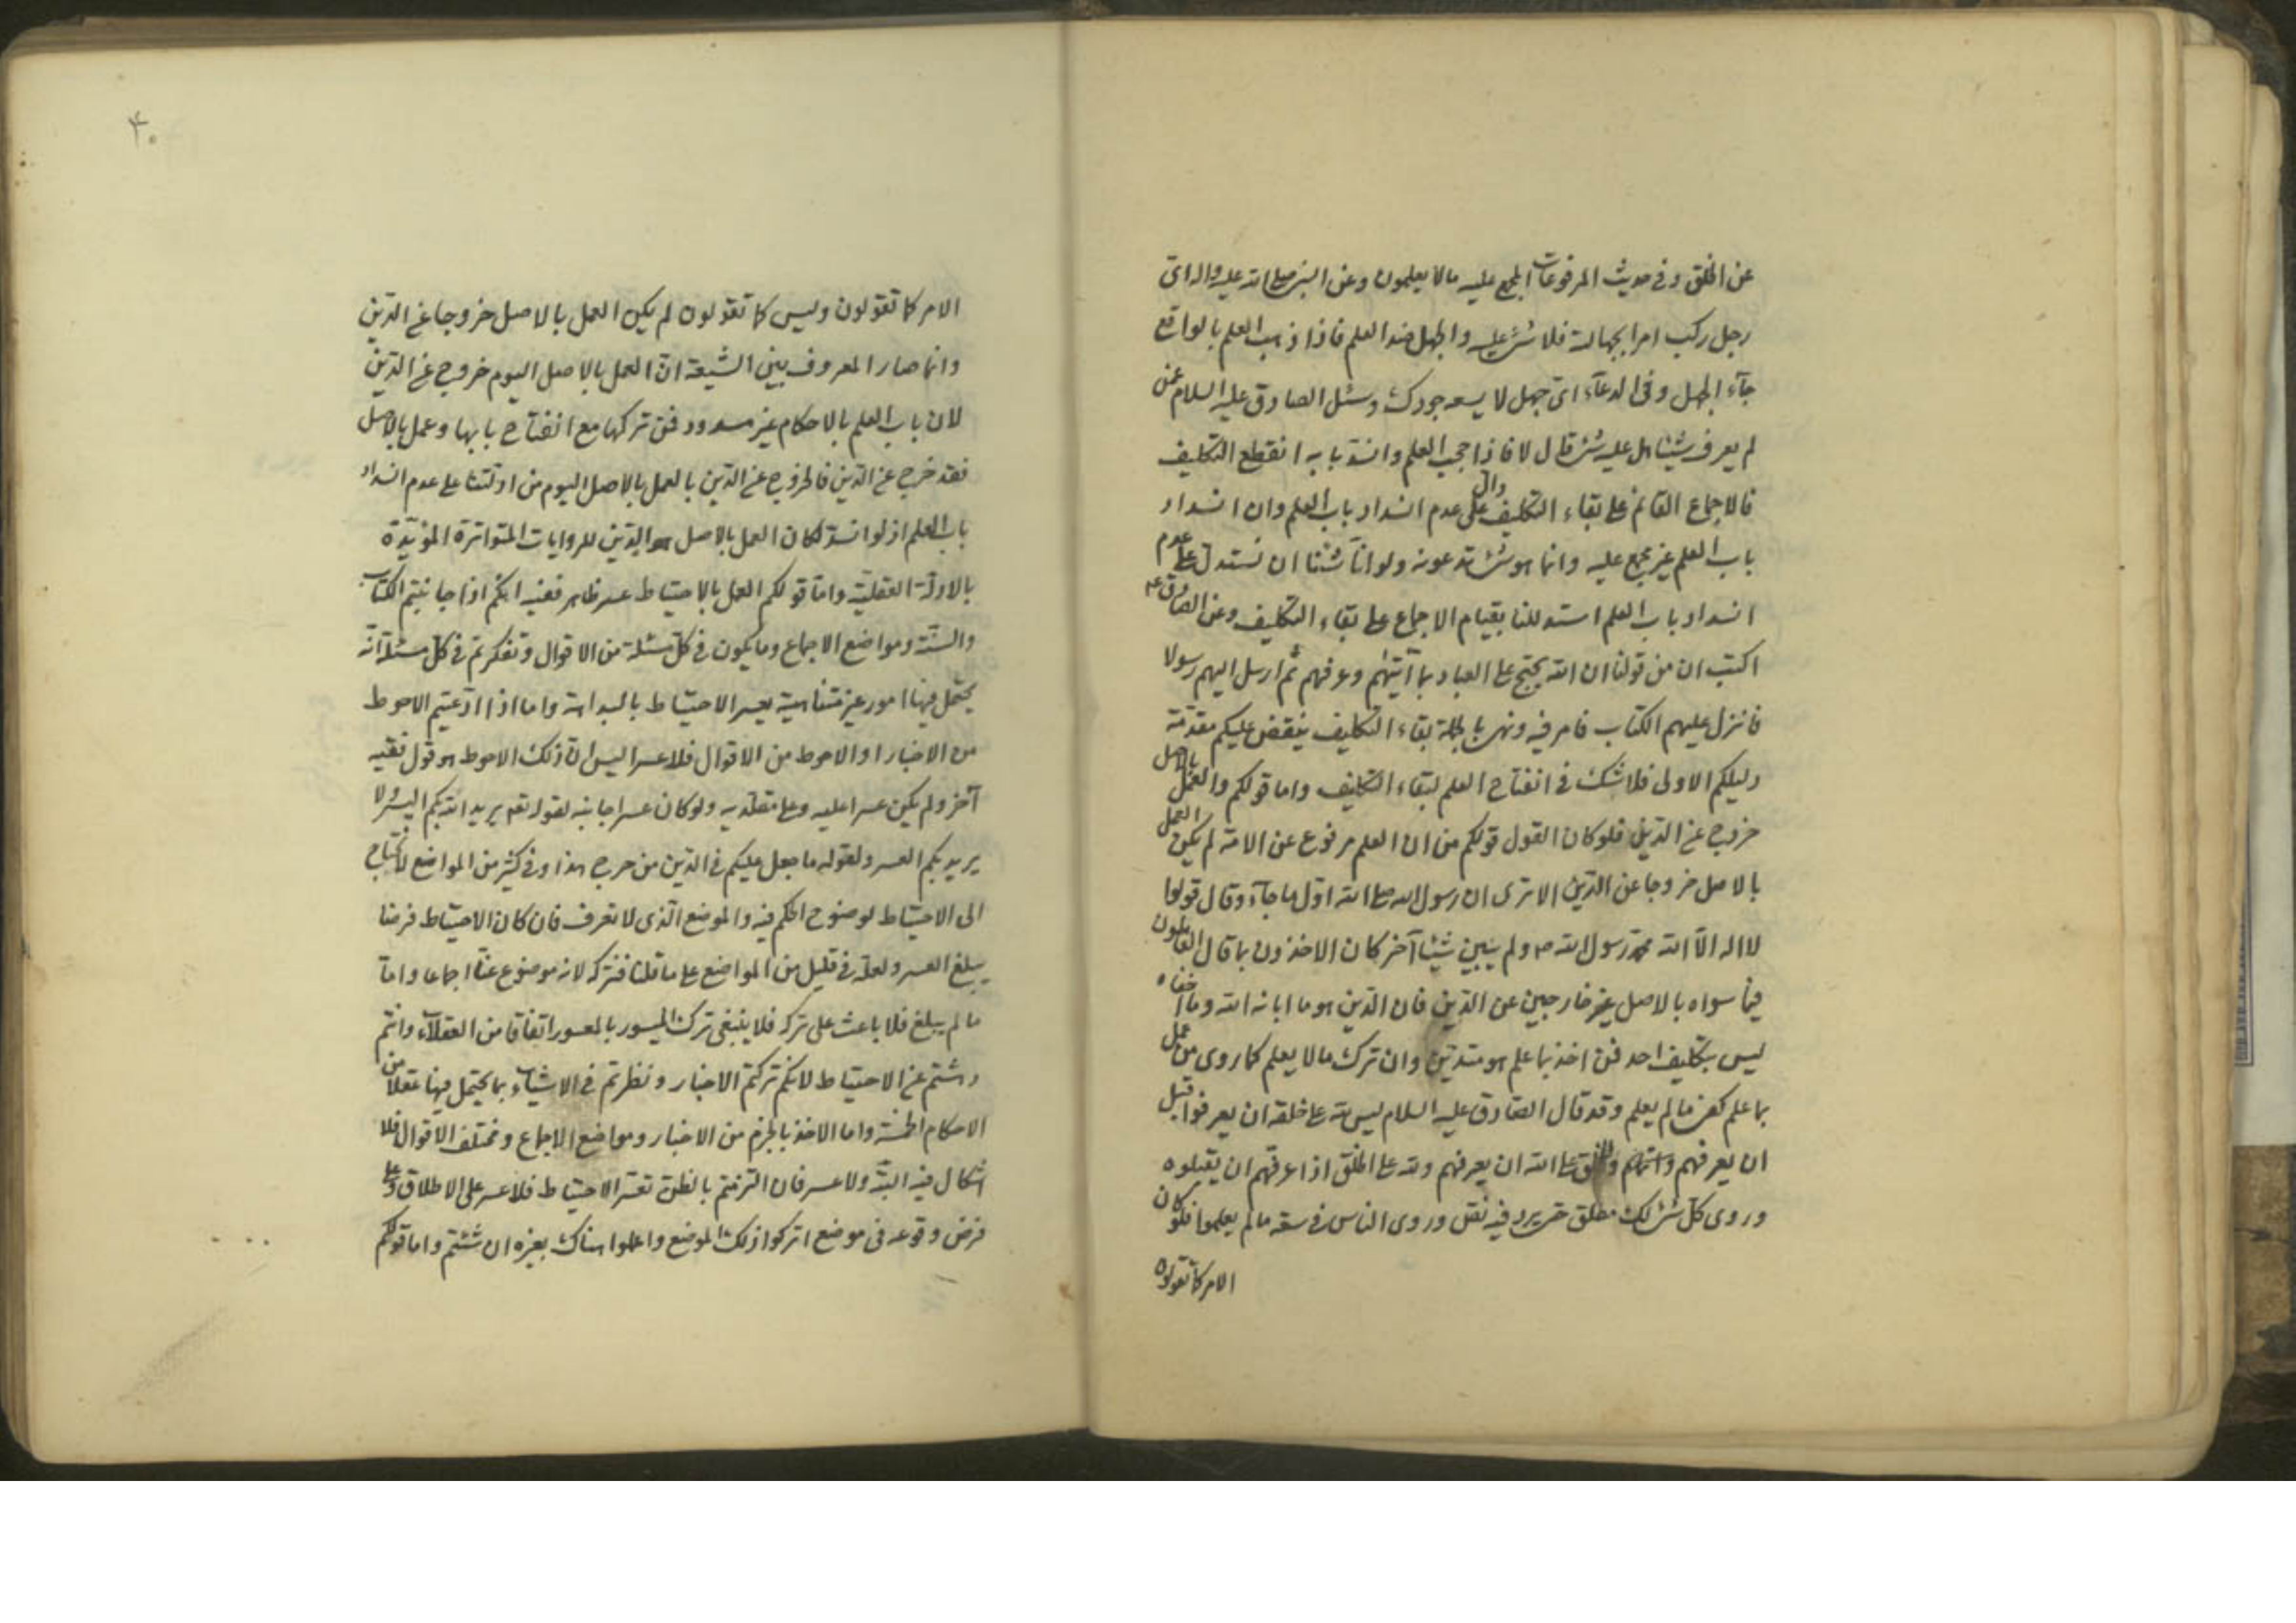 عن الخلق و فى حديث المرفوعات المجمع عليه مالا يعلمون و عن النبى صلى الله عليه و اله اى
رجل ركب امرا بجهالة فلا شئ عليه و الجهل ضد العلم فاذا ذهب العلم بالواقع
جآء الجهل و فى الدعآء اى جهل لا يسعه جودك و سئل الصادق عليه السلام عمن
لم يعرف شيئا هل عليه شئ قال لا فاذا حجب العلم و انسد بابه انقطع التكليف
فالاجماع القائم على بقاء التكليف دال على عدم انسداد باب العلم و ان انسداد
باب العلم غير مجمع عليه و انما هو شئ تدعونه و لو انا شئنا ان نستدل على عدم
انسداد باب العلم استدللنا بقيام الاجماع على بقاء التكليف و عن الصادق ع
اكتب ان من قولنا ان الله يحتج على العباد بما آتيهم و عرفهم ثم ارسل اليهم رسولا
فانزل عليهم الكتاب فامر فيه و نهى بالجملة بقاء التكليف ينقض عليكم مقدمة
دليلكم الاولى فلا شك فى انفتاح العلم لبقاء التكليف و اما قولكم و العمل بالاصل
خروج عن الدين فلو كان القول قولكم من ان العلم مرفوع عن الامة لم يكن العمل
بالاصل خروجا عن الدين الا ترى ان رسول الله صلى الله اول ما جآء و قال قولوا
لا اله الا الله محمد رسول الله ص و لم يبين شيئا آخر كان الاخذون بما قال العاملون
فيما سواه بالاصل غير خارجين عن الدين فان الدين هو ما ابانه الله و ما اخفاه
ليس بتكليف احد فمن اخذ بما علم هو متدين و ان ترك مالا يعلم كما روى من عمل
بما علم كفى ما لم يعلم و قد قال الصادق عليه السلام ليس لله على خلقه ان يعرفوا قبل
ان يعرفهم و للخلق على الله ان يعرفهم و لله على الخلق اذا عرفهم ان يقبلوه
و روى كل شئ لك مطلق حتى يرد فيه نص و روى الناس فى سعة مالم يعلموا فلو كان
الامر كما تقولون
۴۰
الامر كما تقولون و ليس كما تقولون لم يكن العمل بالاصل خروجا عن الدين
و انما صار المعروف بين الشيعة ان العمل بالاصل اليوم خروج عن الدين
لان باب العلم بالاحكام غير مسدود فمن تركها مع انفتاح بابها و عمل بالاصل
فقد خرج عن الدين فالخروج عن الدين بالعمل بالاصل اليوم من ادلتنا على عدم انسداد
باب العلم اذ لو انسد لكان العمل بالاصل هو الدين للروايات المتواترة المؤيدة
بالادلة العقلية و اما قولكم العمل بالاحتياط عسر ظاهر ففيه انكم اذا جانبتم الكتاب
و السنة و مواضع الاجماع و ما يكون فى كل مسئلة من الاقوال و تفكرتم فى كل مسئلة انه
يحتمل فيها امور غير متناهية يعسر الاحتياط بالبداهة و اما اذا ادعيتم الاحوط
من الاخبار او الاحوط من الاقوال فلا عسر اليس ان ذلك الاحوط هو قول فقيه
آخر و لم يكن عسرا عليه و على مقلديه و لو كان عسرا جانبه لقوله تعم يريد الله بكم اليسر و لا
يريد بكم العسر و لقوله ما جعل عليكم فى الدين من حرج هذا و فى كثير من المواضع لا نحتاج
الى الاحتياط لوضوح الحكم فيه و الموضع الذى لا نعرف فان كان الاحتياط فرضا
يبلغ العسر و لعله فى قليل من المواضع على ما قلنا فنتركه لانه موضوع عنا اجماعا و اما
ما لم يبلغ فلا باعث على تركه فلا ينبغى ترك الميسور بالمعسور اتفاقا من العقلآء و انتم
دهشتم عن الاحتياط لانكم تركتم الاخبار و نظرتم فى الاشياء بما يحتمل فيها عقلا من
الاحكام الخمسة و اما الاخذ بالجزم من الاخبار و مواضع الاجماع و مختلف الاقوال فلا
اشكال فيه البتة و لا عسر فان التزمتم بالظن تعسر الاحتياط فلا عسر على الاطلاق و على
فرض وقوعه فى موضع اتركوا ذلك الموضع و اعملوا هناك بغيره ان شئتم و اما قولكم